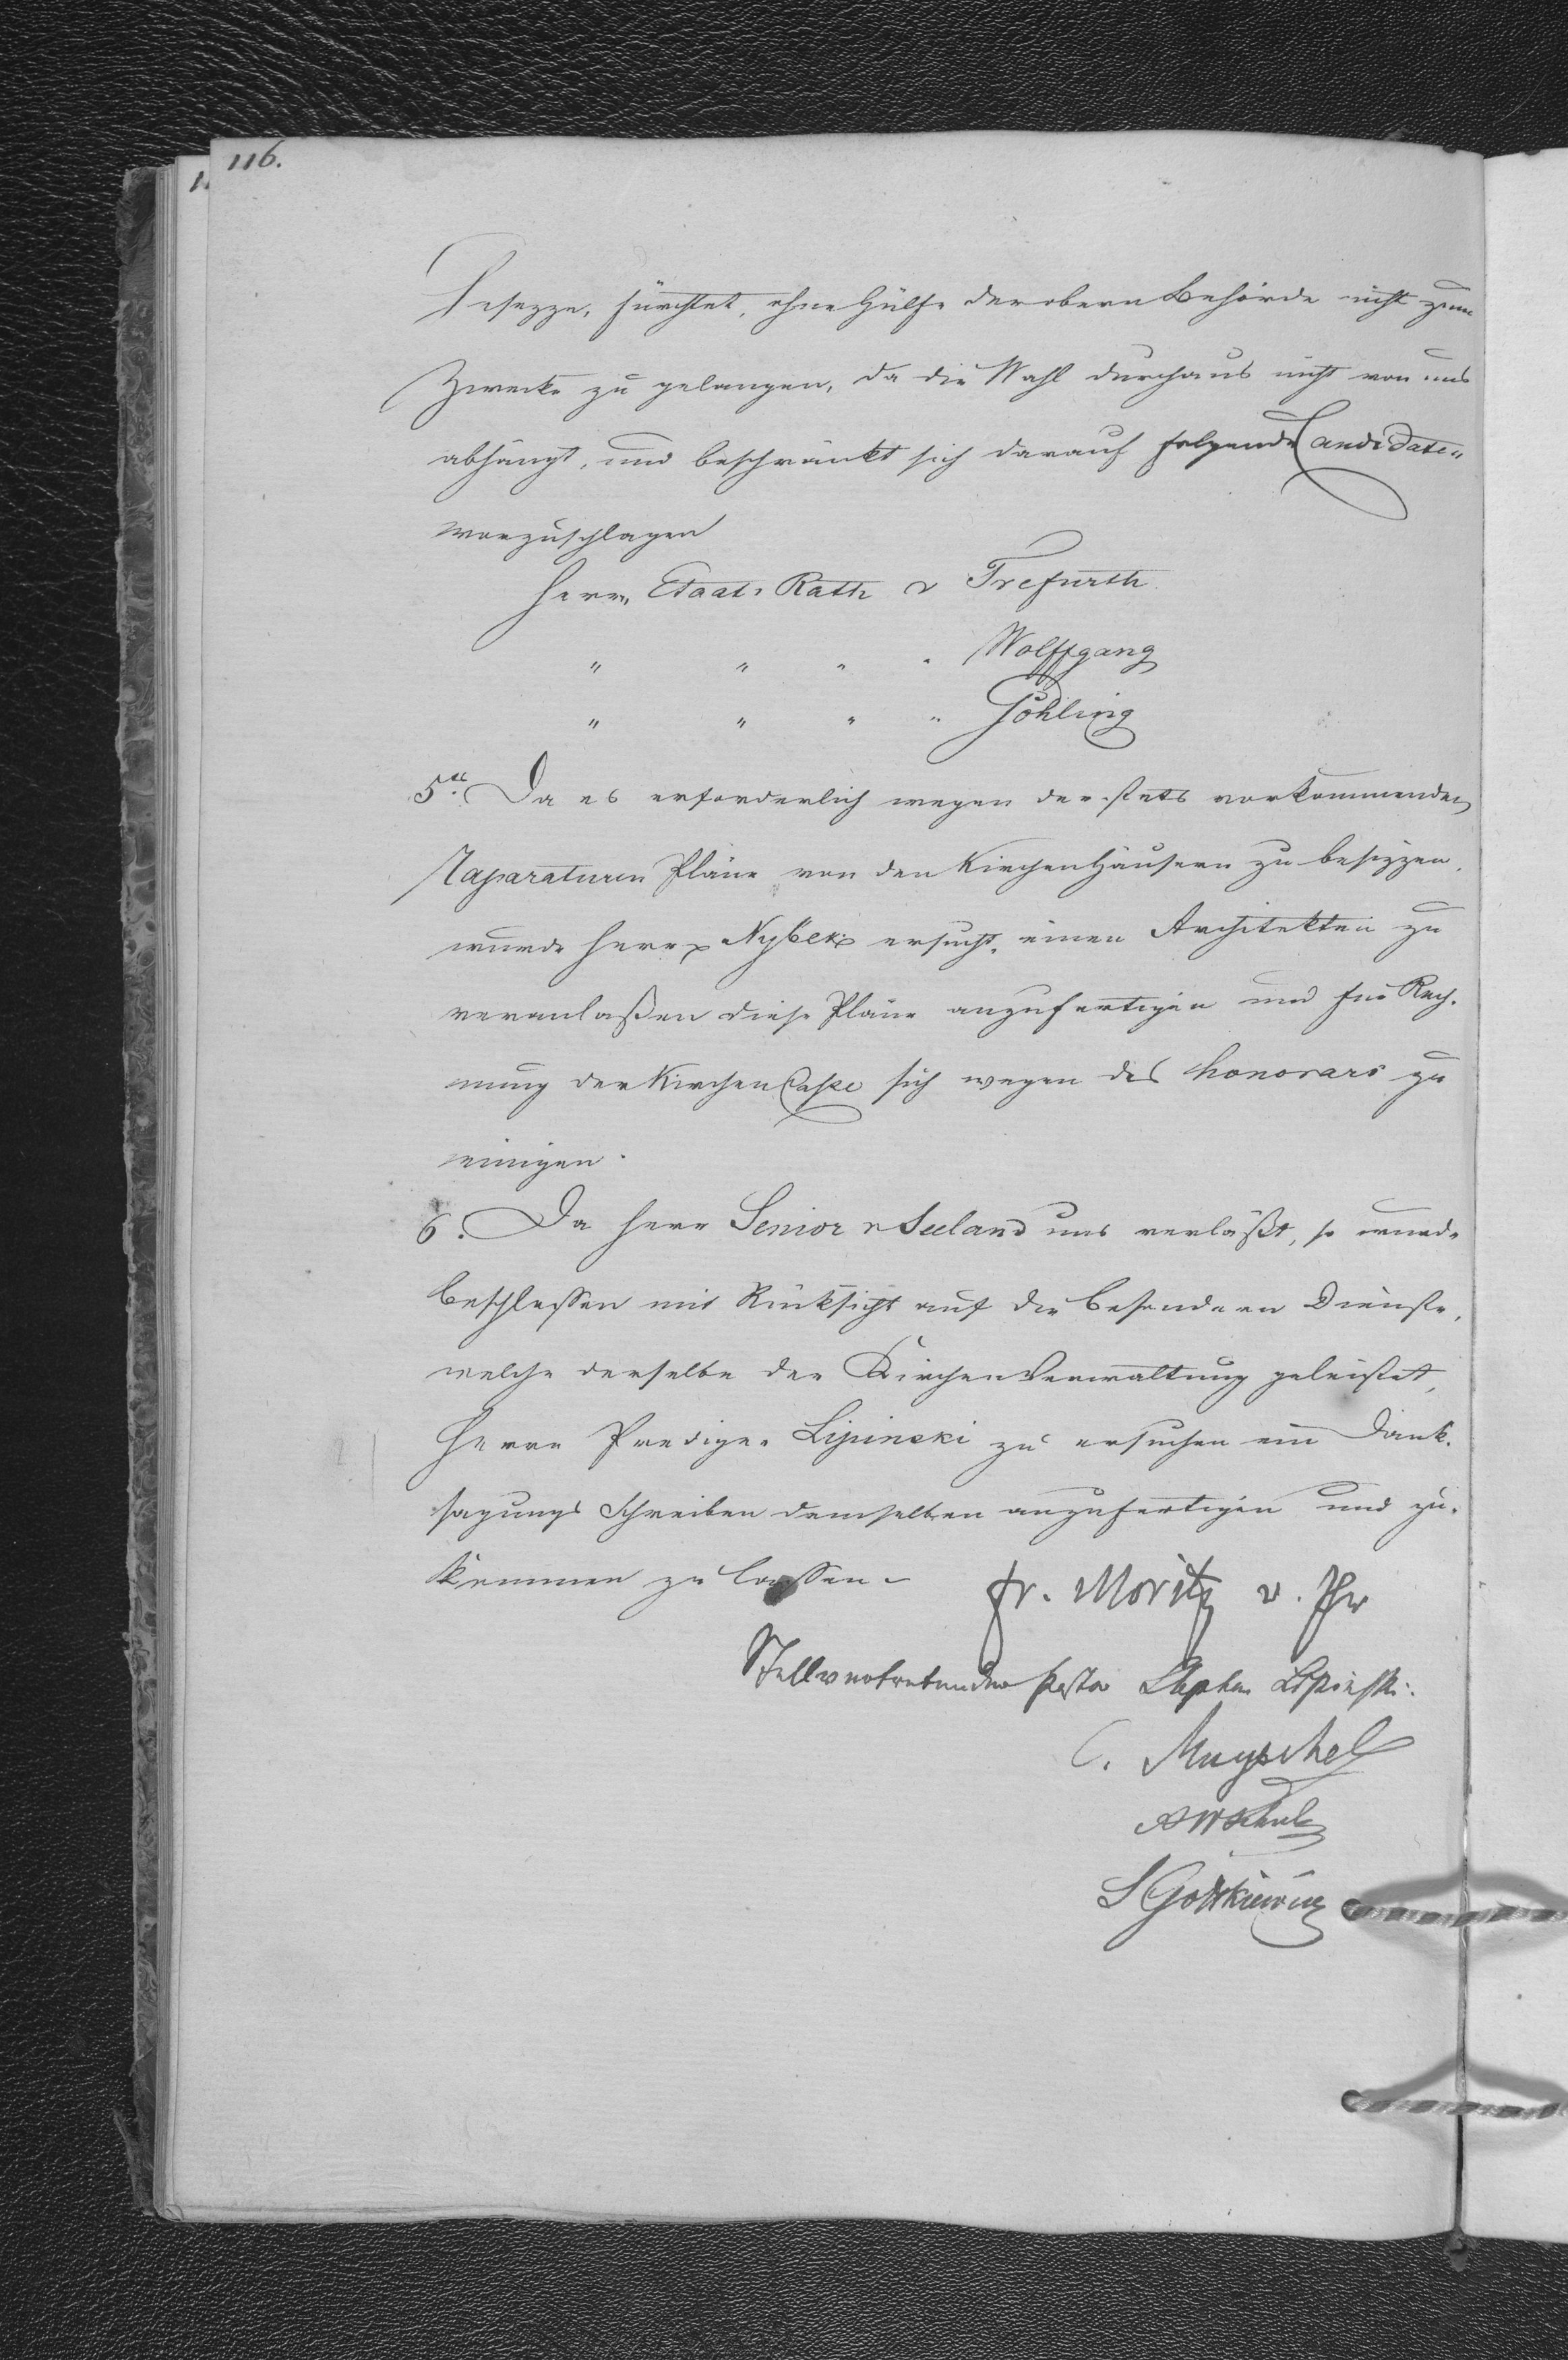 116.
Gesezze, fürchtet, ohne Hülfe der obern Behörde nicht zum
Zwecke zu gelangen, da die Wahl durchaus nicht von uns
abhängt, und beschränkt sich darauf folgende Candidaten
vorzuschlagen
Herrn Staats Rath v Trefurth
" " " " Wolffgang
" " " " Göhling
5. Da es erforderlich wegen der stets vorkommenden
Raparaturen Pläne von den Kirchenhäusern zu besizzen,
wurde Herr v Nybek ersucht, einen Architekten zu
veranlaßen diese Pläne anzufertigen und für Rech-
nung der Kirchen Casse sich wegen des honorars zu
einigen.
6. Da Herr Senior v Seeland uns verläßt, so wurde
beschlossen mit Rücksicht auf die besondern Dienste,
welche derselbe der Kirchen Verwaltung geleistet,
Herrn Prediger Lipinski zu ersuchen ein Dank-
sagungs Schreiben demselben anzufertigen und zu-
kommen zu lassen.
Fr. Moritz v. Ihr
Stellvertretender Pastor Stephan Lipinski.
C. Muyschel
AW Schulz
S Gottkiewicz